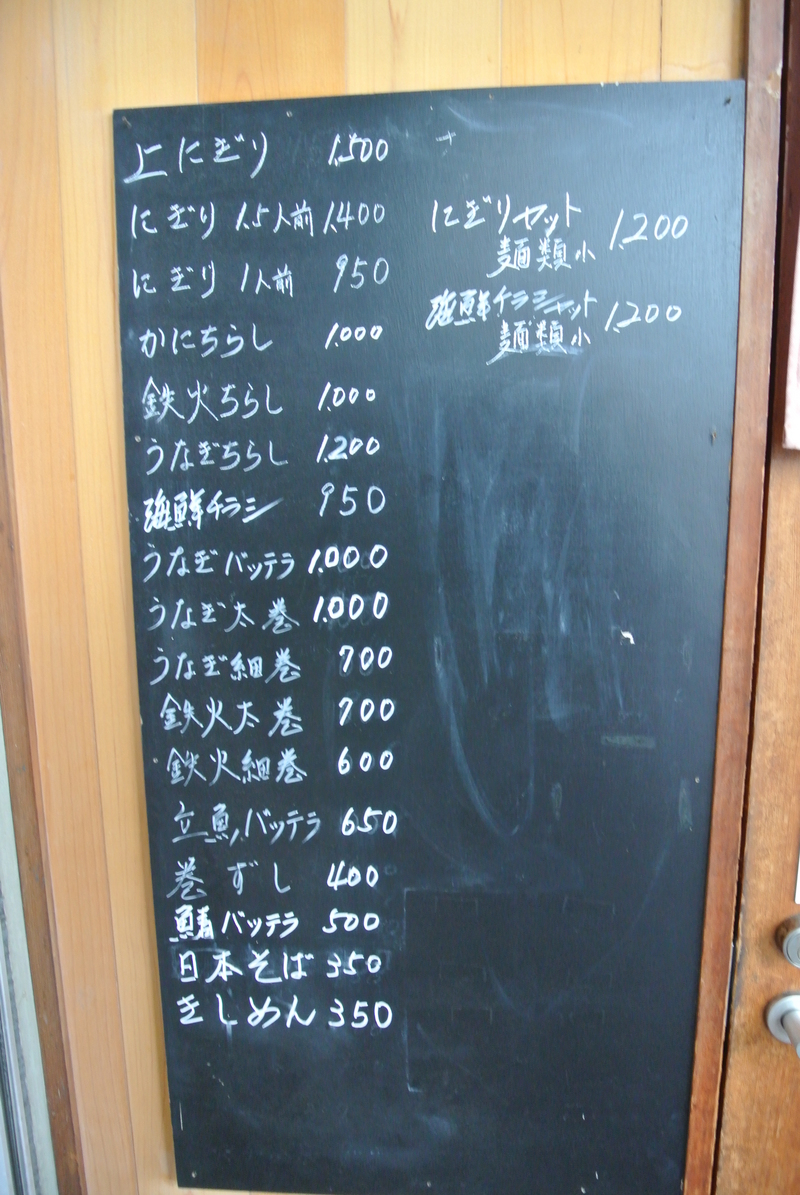 上にぎり 1,500
にぎり 1.5人前 1,400
にぎり 1人前 950
かにちらし 1,000
鉄火ちらし 1,000
うなぎちらし 1,200
海鮮チラシ 950
うなぎバッテラ 1,000
うなぎ太巻 1,000
うなぎ細巻 700
鉄火太巻 700
鉄火細巻 600
立魚バッテラ 650
巻ずし 400
鯖バッテラ 500
日本そば 350
きしめん 350
にぎりセット 1,200
麺類小
海鮮チラシセット 1,200
麺類小